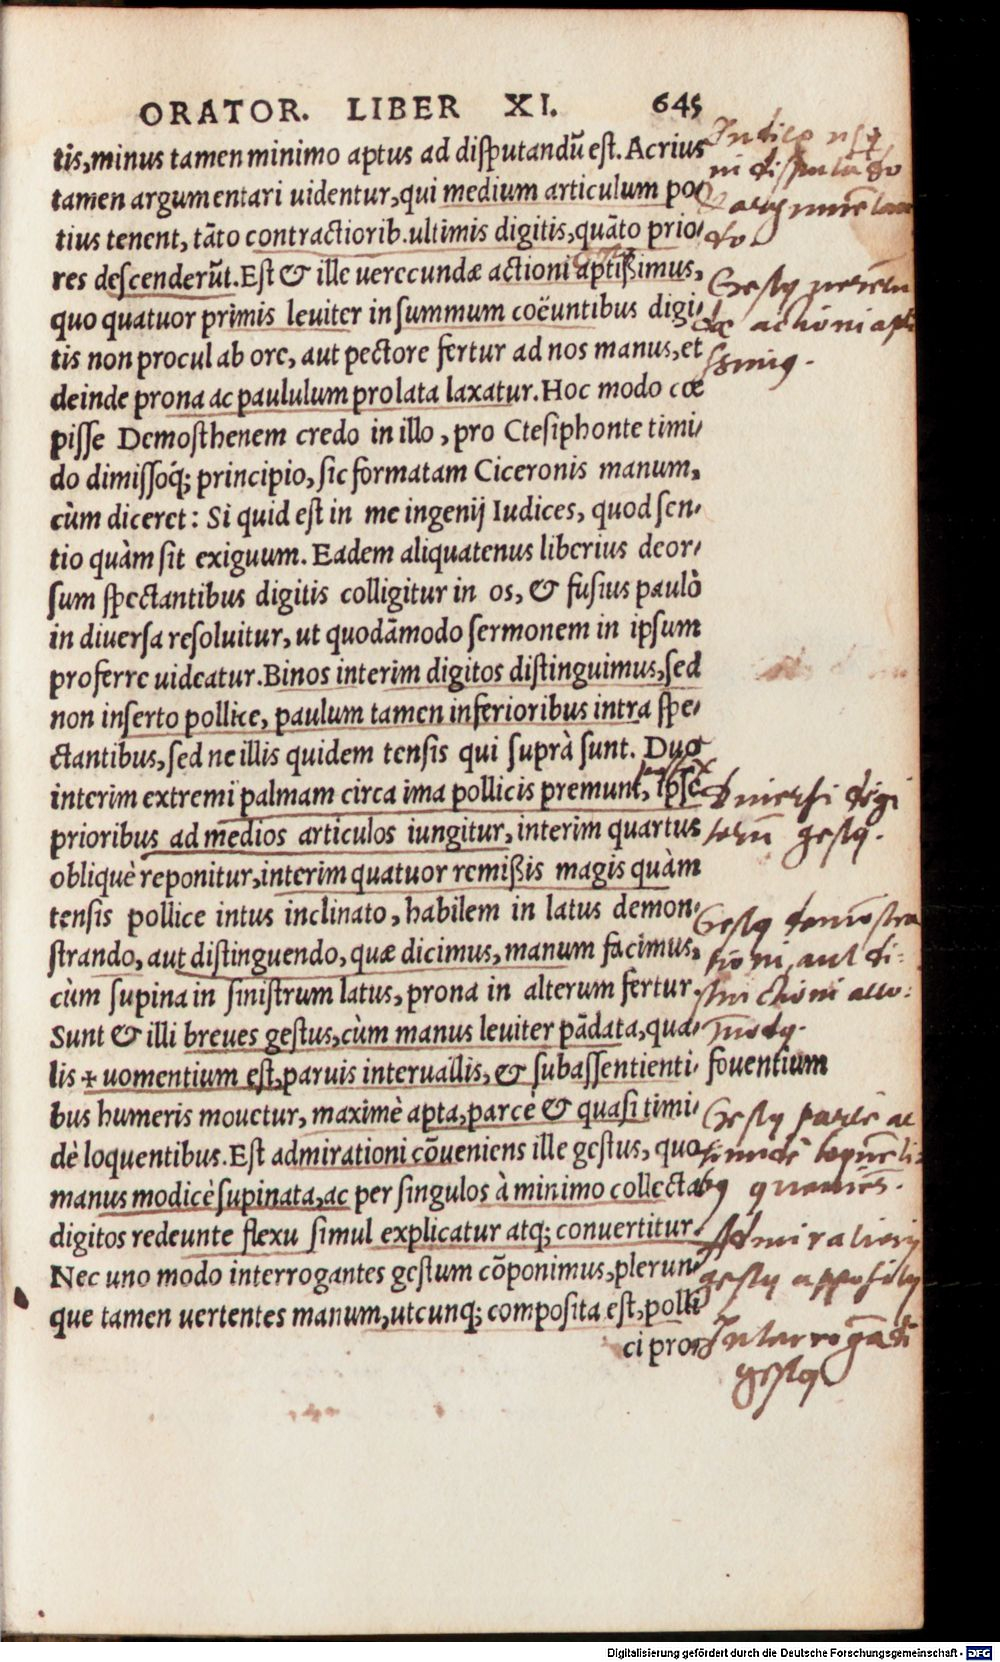 ORATOR. LIBER XI. 645
tis,minus tamen minimo aptus ad disputandū est. Acrius
tamen argumentari uidentur,qui medium articulum po-
tius tenent, tāto contractiorib.ultimis digitis,quāto prio-
res descenderūt.Est & ille uerecundæ actioni aptißimus,
quo quatuor primis leuiter in summum coëuntibus digi-
tis non procul ab ore, aut pectore fertur ad nos manus,et
deinde prona ac paululum prolata laxatur.Hoc modo cœ
pisse Demosthenem credo in illo , pro Ctesiphonte timi-
do dimissoq́; principio, sic formatam Ciceronis manum,
cùm diceret: Si quid est in me ingenij Iudices, quod sen-
tio quàm sit exiguum. Eadem aliquatenus liberius deor-
sum spectantibus digitis colligitur in os, & fusius paulò
in diuersa resoluitur, ut quodāmodo sermonem in ipsum
proferre uideatur.Binos interim digitos distinguimus,sed
non inserto pollice, paulum tamen inferioribus intra spe-
ctantibus,sed ne illis quidem tensis qui suprà sunt. Duo
interim extremi palmam circa ima pollicis premunt, ipse
prioribus ad medios articulos iungitur, interim quartus
obliquè reponitur,interim quatuor remißis magis quàm
tensis pollice intus inclinato, habilem in latus demon-
strando, aut distinguendo, quæ dicimus, manum facimus,
cùm supina in sinistrum latus, prona in alterum fertur.
Sunt & illi breues gestus,cùm manus leuiter pādata, qua-
lis + uomentium est,paruis interuallis, & subassentienti-
fouentium
bus humeris mouetur, maximè apta,parcè & quasi timi-
dè loquentibus.Est admirationi cōueniens ille gestus, quo
manus modicè supinata, ac per singulos à minimo collecta
digitos redeunte flexu simul explicatur atq; conuertitur.
Nec uno modo interrogantes gestum cōponimus,plerun-
que tamen uertentes manum,utcunq; composita est, polli
ci pro-
Gestꝗ uerecun
dæ actioni apti
ssimꝗ.
Diuersi digi
torū gestꝗ.
Gestꝗ demōstra
tioni, aut di-
stinctioni acco-
modꝗ.
Gestꝗ parcè ac
timidè loquēti
bꝗ queniēs.
Admirationis
gestꝗ appositꝗ
Interrogādi
gestꝗ
Digitalisierung gefördert durch die Deutsche Forschungsgemeinschaft - DFG